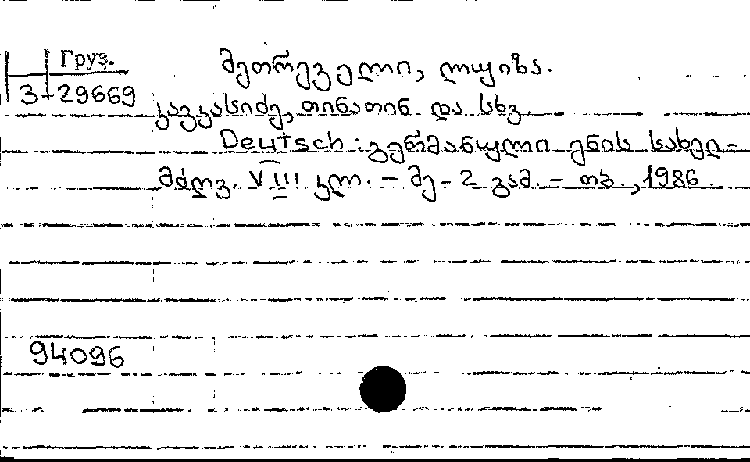 Груз.
3-29669
მეთრეველი, ლუიზა.
კავკასიძე, თინათინ და სხვ.
Deutsch: გერმანული ენის სახელ-
მძღვ. VIII კლ. – მე-2 გამ. – თბ., 1986.
94096